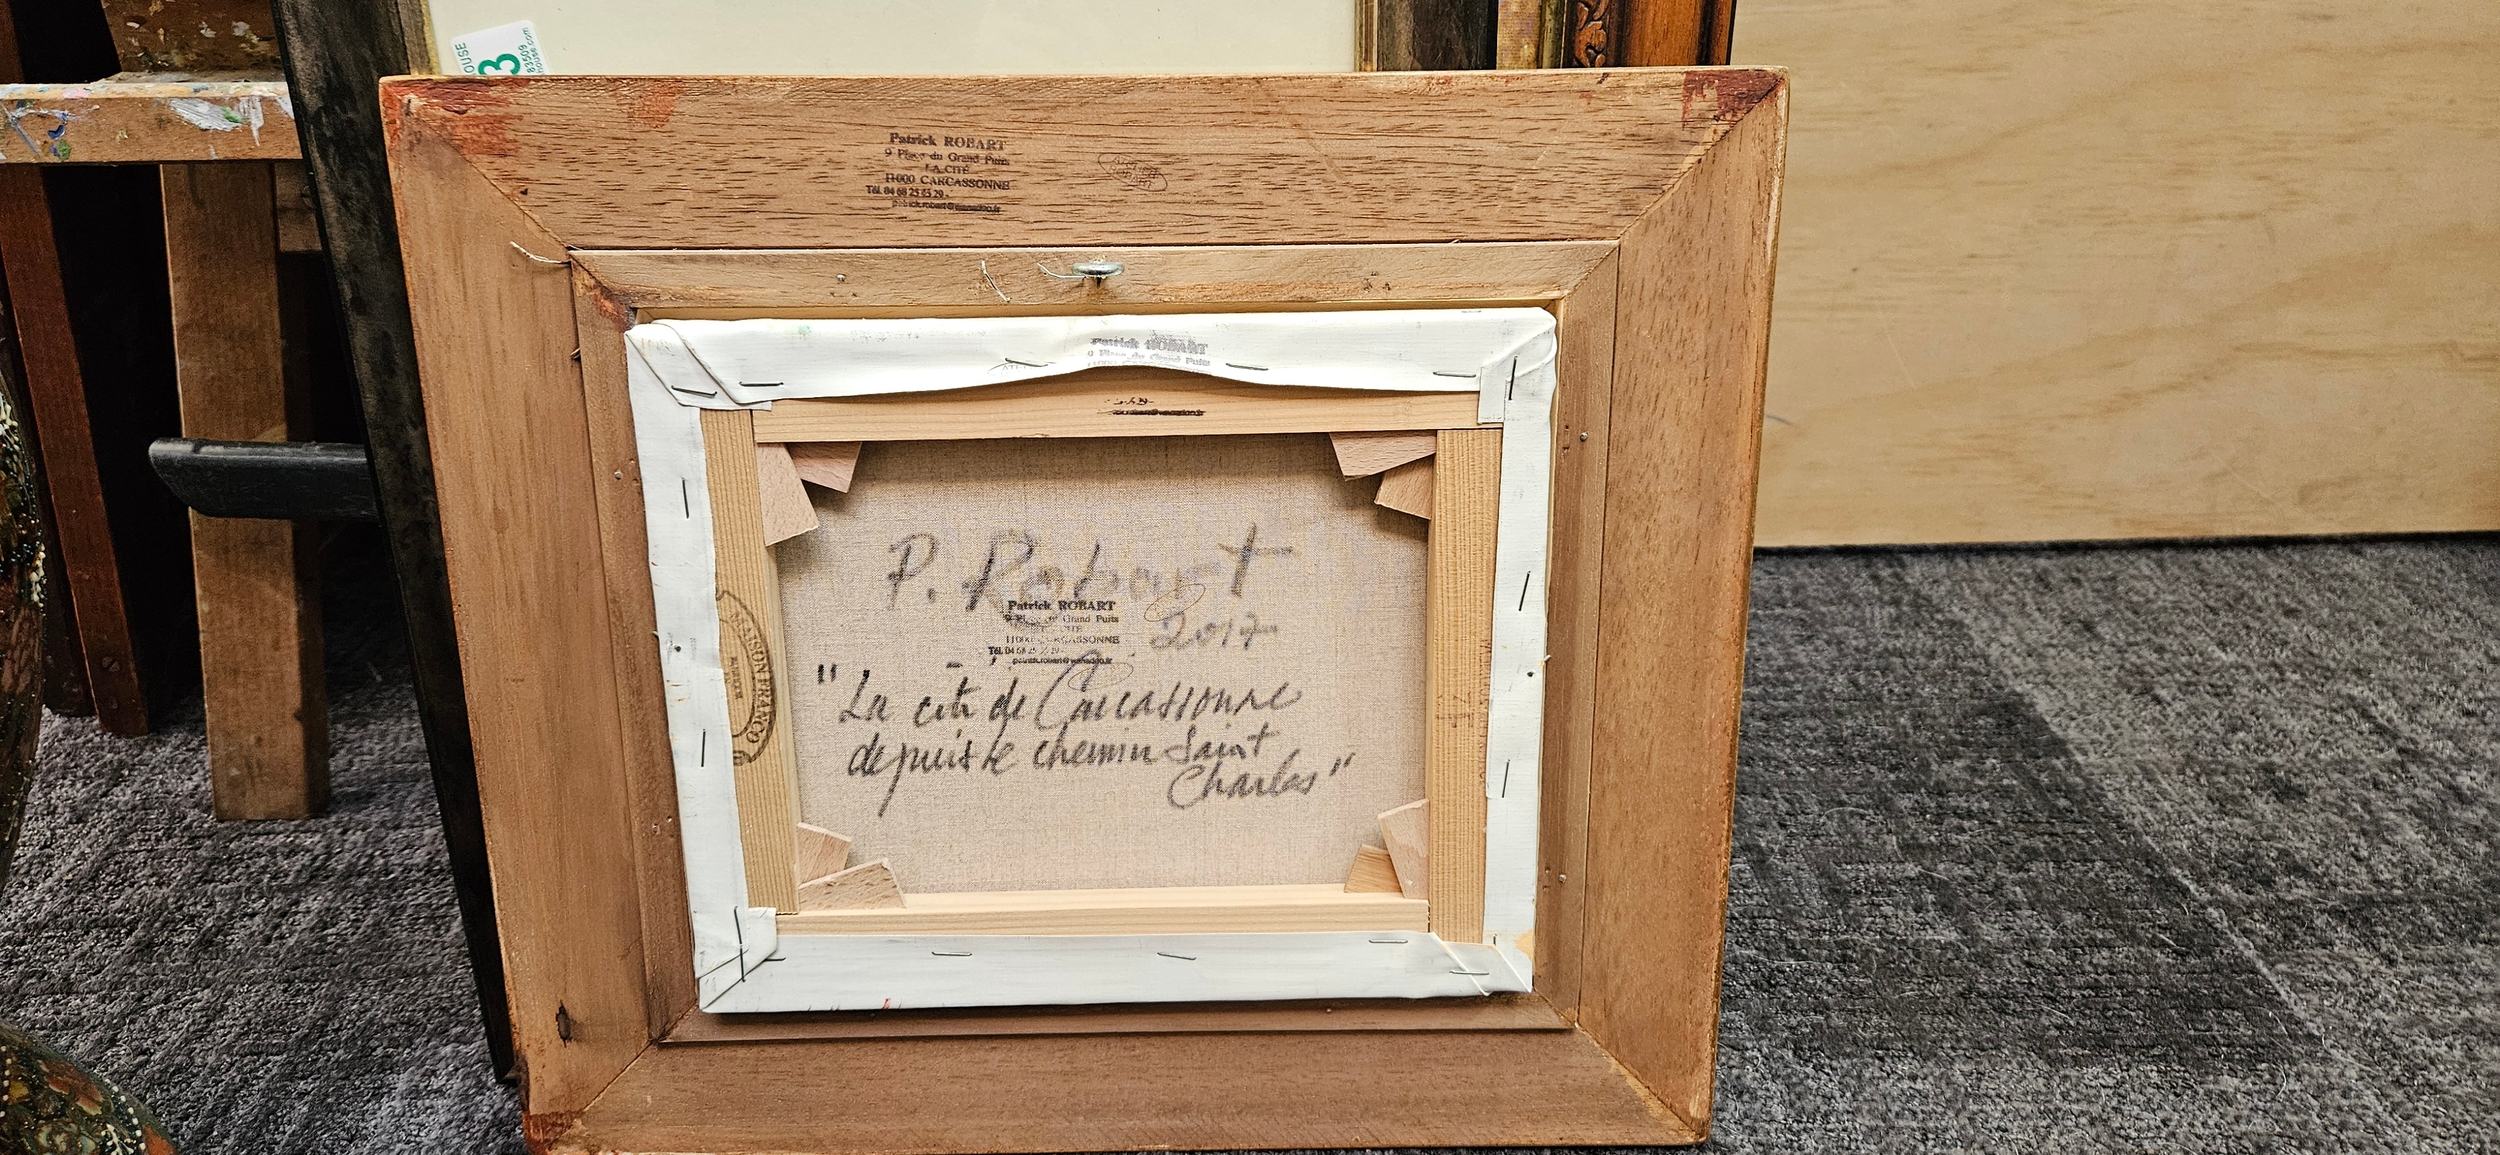 OUSE
3
83509
house.com
Patrick ROBART
9 Place du Grand Puits
LA CITÉ
11000 CARCASSONNE
Tél. 04 68 25 65 29 -
patrick.robart@wanadoo.fr
ATELIER
ROBART
Patrick ROBART
9 Place du Grand Puits
11000 CARCASSONNE
P. Robart
2017
Patrick ROBART
9 Place du Grand Puits
11000 CARCASSONNE
Tél. 04 68 25
patrick.robart@wanadoo.fr
"La cité de Carcassonne
depuis le chemin Saint
Charles"
MAISON FRANCO